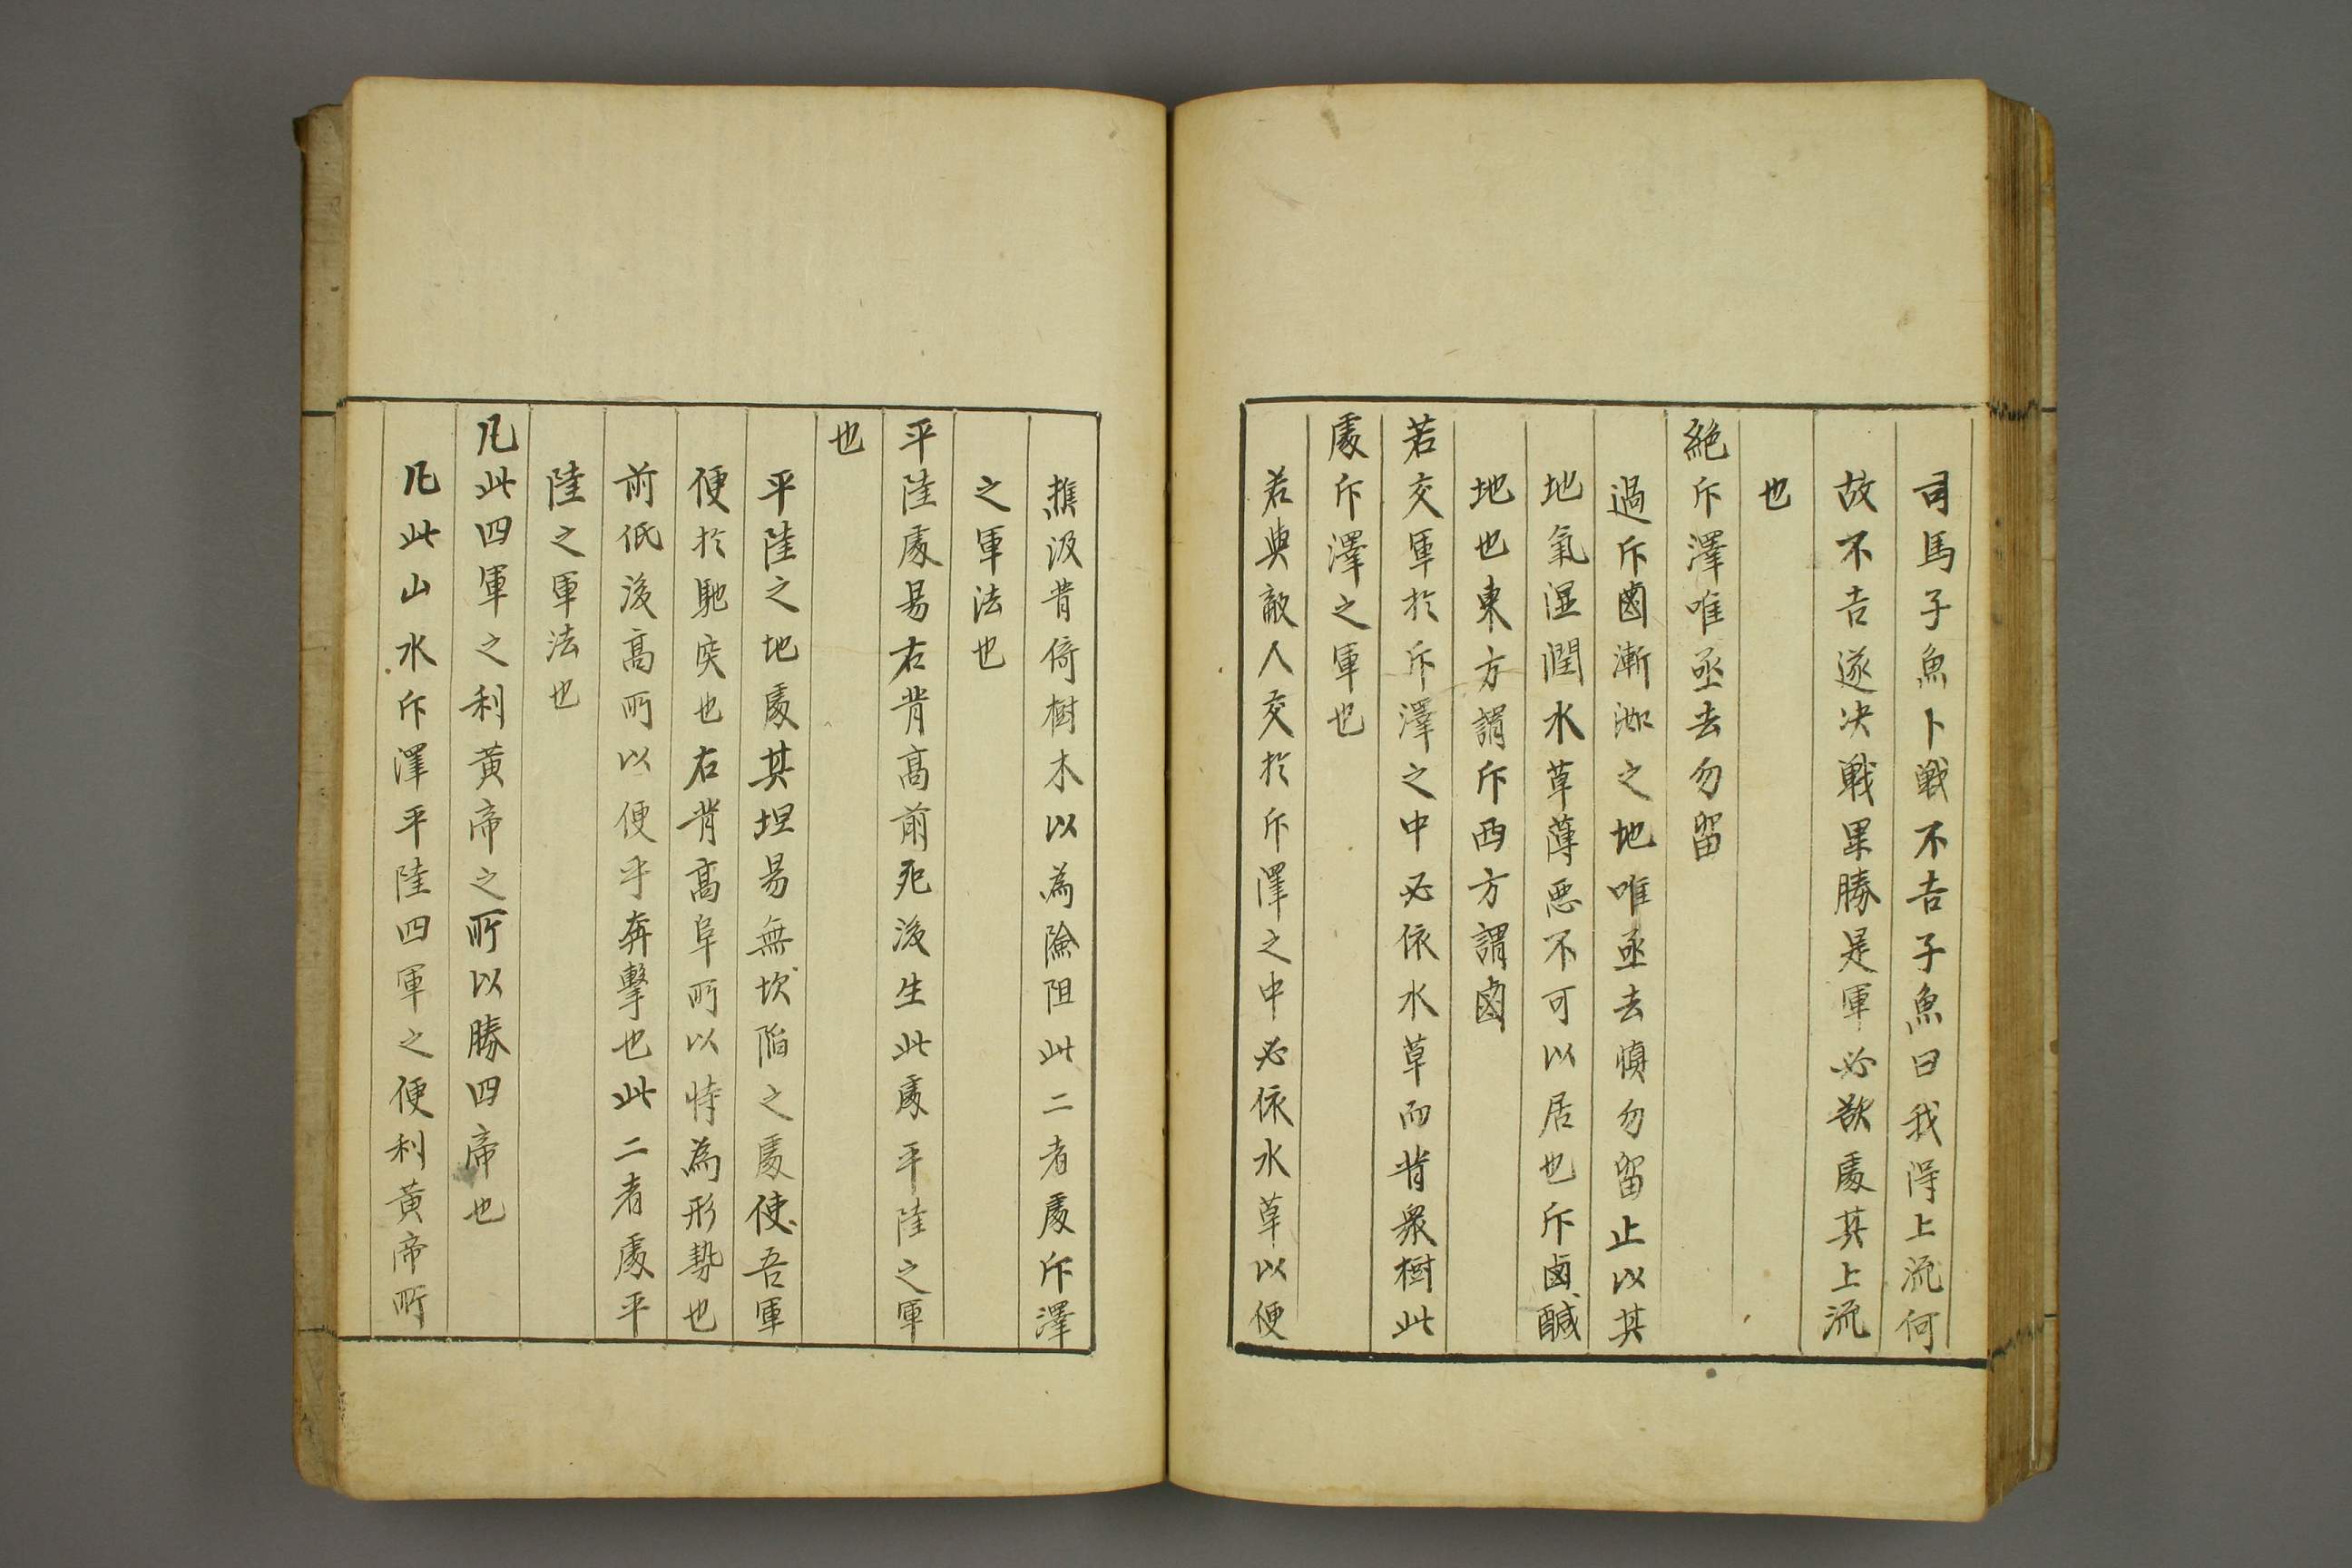 司馬子魚卜戰不吉子魚曰我得上流何
故不吉遂决戰果勝是軍必欲處其上流
也
絶斥澤唯亟去勿留
過斥鹵漸洳之地唯亟去慎勿留止以其
地氣濕潤水草薄惡不可以居也斥鹵鹹
地也東方謂斥西方謂鹵
若交軍於斥澤之中必依水草而背衆樹此
處斥澤之軍也
若與敵人交於斥澤之中必依水草以便
樵汲背倚樹木以為險阻此二者處斥澤
之軍法也
平陸處易右背高前死後生此處平陸之軍
也
平陸之地處其坦易無坎陷之處使吾軍
便於馳突也右背高阜所以恃為形勢也
前低後高所以便乎奔擊也此二者處平
陸之軍法也
凡此四軍之利黃帝之所以勝四帝也
凡此山水斥澤平陸四軍之便利黃帝所